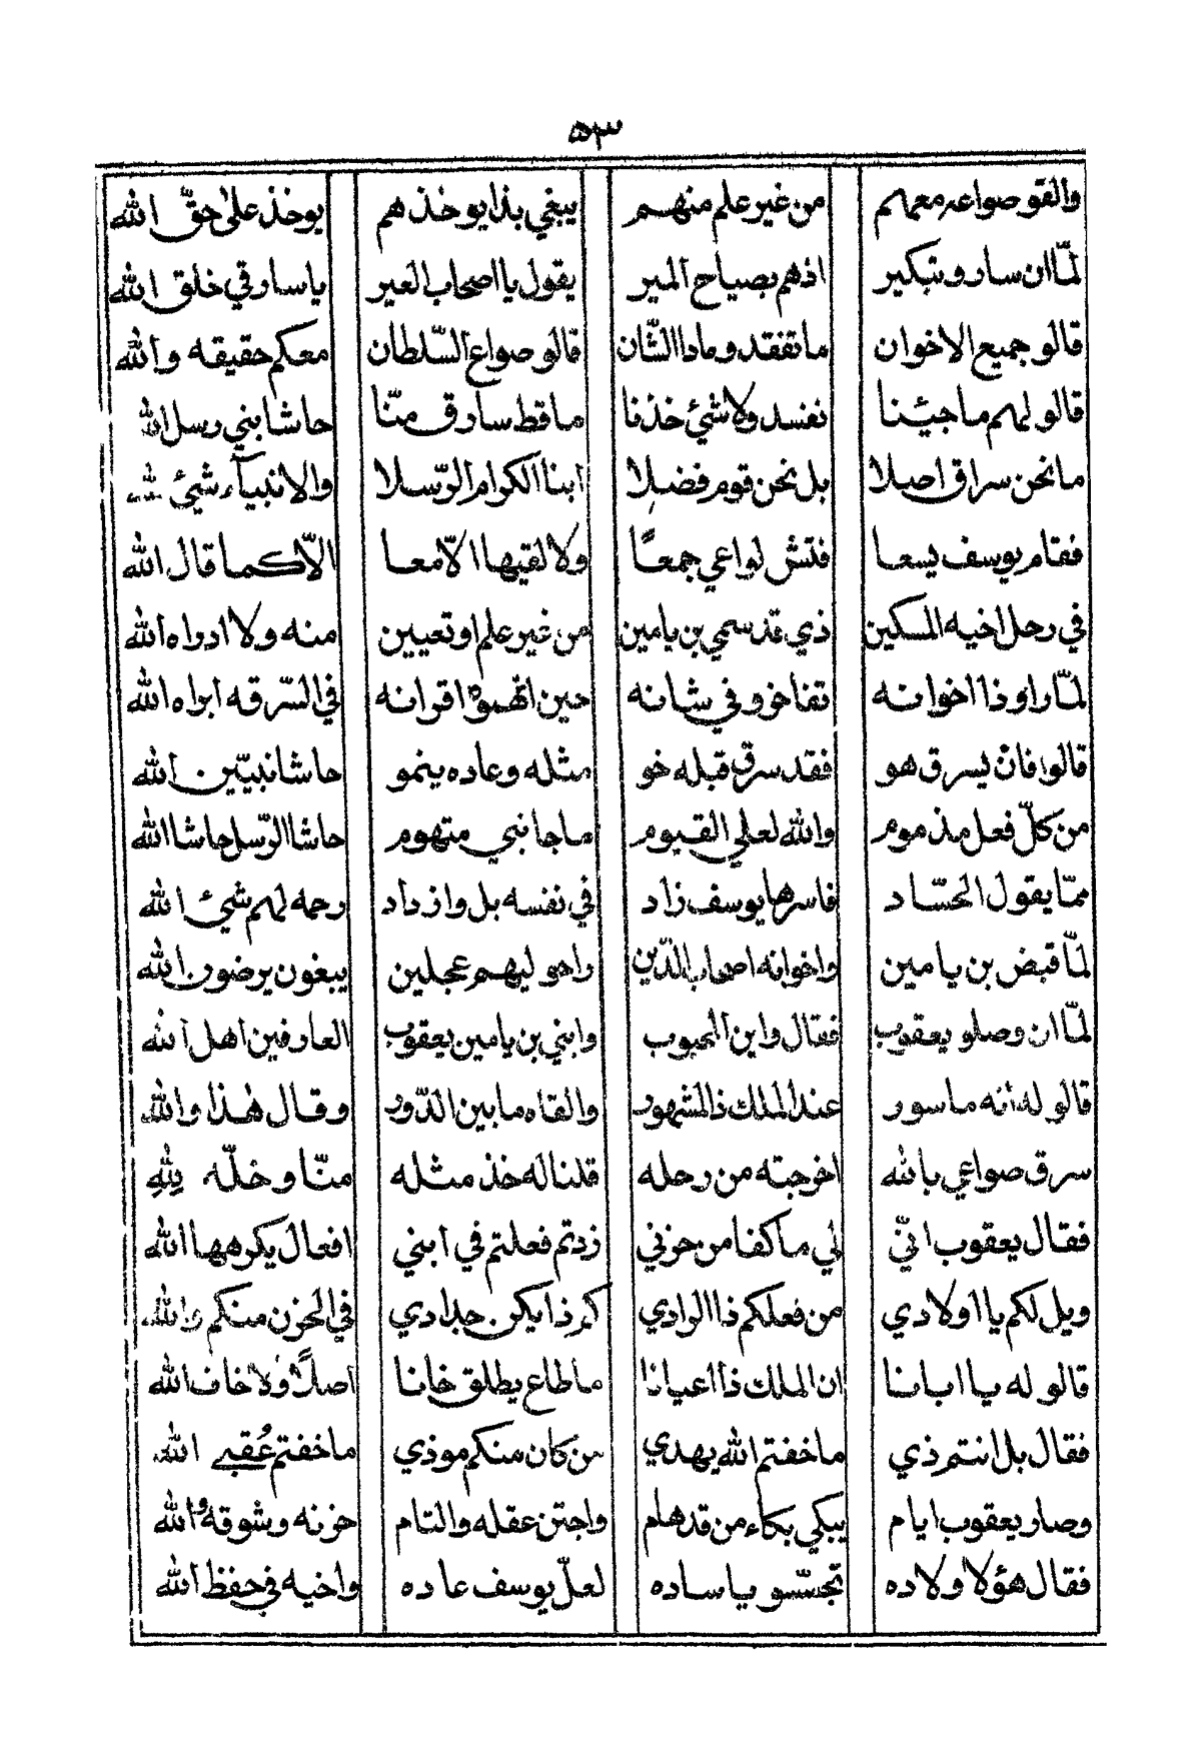 ٥٣
والقو صواعه معهم من غير علم منهم يبغي بذا يوخذ هم يوخذ على حقّ الله
لمّا ان سارو بتبكير اذهم بصياح المير يقول يا اصحاب العير يا سارقي خلق الله
قالو جميع الاخوان ما تفقد وماذا الشّان قالو صواع السّلطان معكم حقيقه والله
قالو لهم ما جيئنا نفسد ولا شئ خذنا ما قط سارق منّا حاشا بني رسل الله
ما نحن سراق اصلا بل نحن قوم فضلا ابنا الكرام الرّسلا والانبيآء شئ لله
فقام يوسف يسعا فتش لواعي جمعًا ولا لقيها الّا معا الّا كما قال الله
في رحل اخيه المسكين ذي قد سمي بن يامين من غير علم او تعيين منه ولا ادراه الله
لمّا راو ذا اخوانه تفاخرو في شانه حين اتهموه اقرانه في السّرقه ابراه الله
قالوا فان يسرق هو فقد سرق قبله خو مثله وعاده ينمو حاشا نبيّين الله
من كلّ فعل مذموم والله لعلي القيوم ما جا نبي متهوم حاشا الرّسل حاشا الله
ممّا يقول الحسّاد فاسرها يوسف زاد في نفسه بل وازداد رحمه لهم شئ الله
لمّا قبض بن يامين واخوانه اصحاب الدّين راحو ليهم عجلين يبغون يرضون الله
لمّا ان وصلو يعقوب فقال واين المحبوب وابني بن يامين يعقوب العارفين اهل الله
قالو له انه ماسور عند الملك ذا المشهور والقاه ما بين الدّور وقال هذا والله
سرق صواعي بالله اخرجته من رحله قلنا له خذ مثله منّا وخلّه لله
فقال يعقوب انّي لي ما كفا من حزني زدتم فعلتم في ابني افعال يكرهها الله
ويل لكم يا اولادي من فعلكم ذا الوادي كم ذا يكن جلدادي في الحزن منكم والله
قالو له يا ابانا ان الملك ذا اعيانا ما طاع يطلق خانا اصلًا ولا خاف الله
فقال بل انتم ذي ما خفتم الله يهدي من كان منكم موذي ما خفتم عُقبى الله
وصار يعقوب ايام يبكي بكاء من قد هام واجتن عقله والتام حزنه وشوقه والله
فقال هؤلا ولاده تجسّسو يا ساده لعلّ يوسف عاده واخيه في حفظ الله